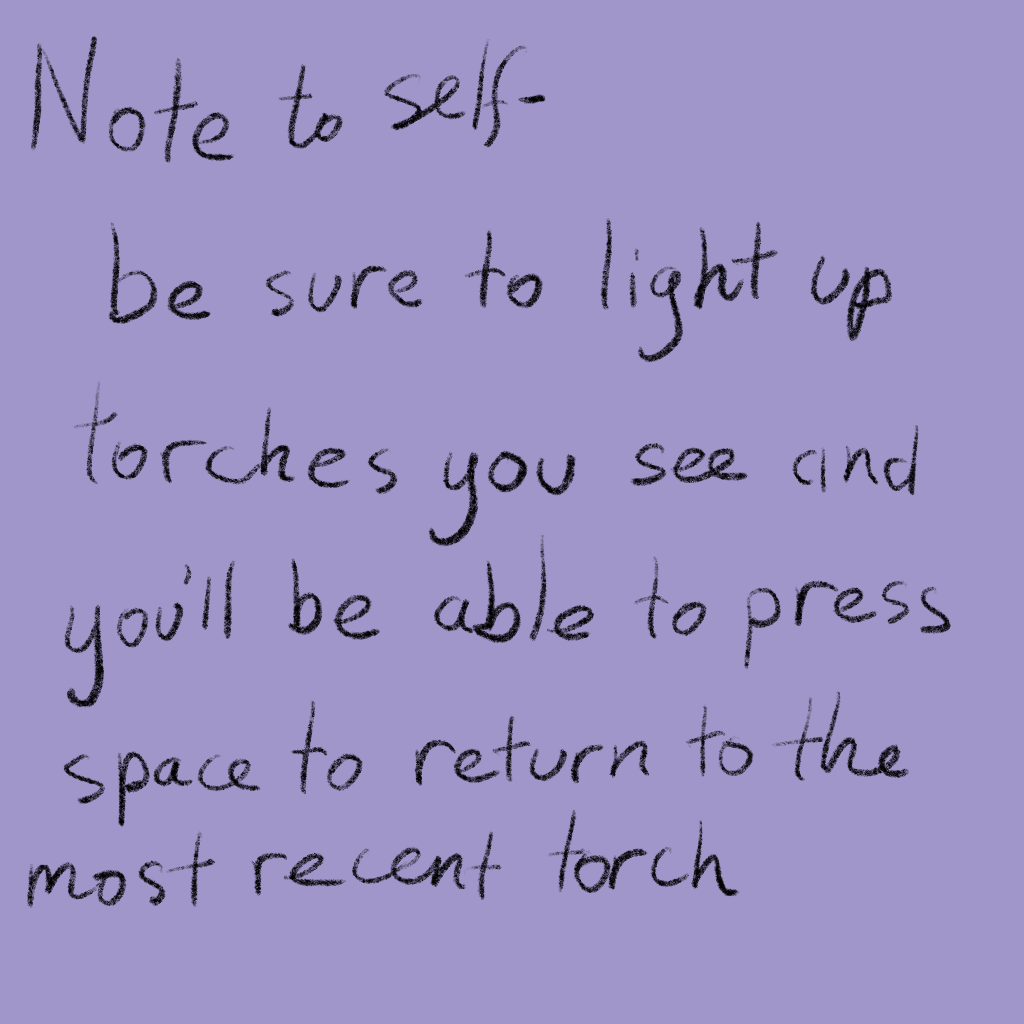 Note to self-
be sure to light up
torches you see and
you'll be able to press
space to return to the
most recent torch